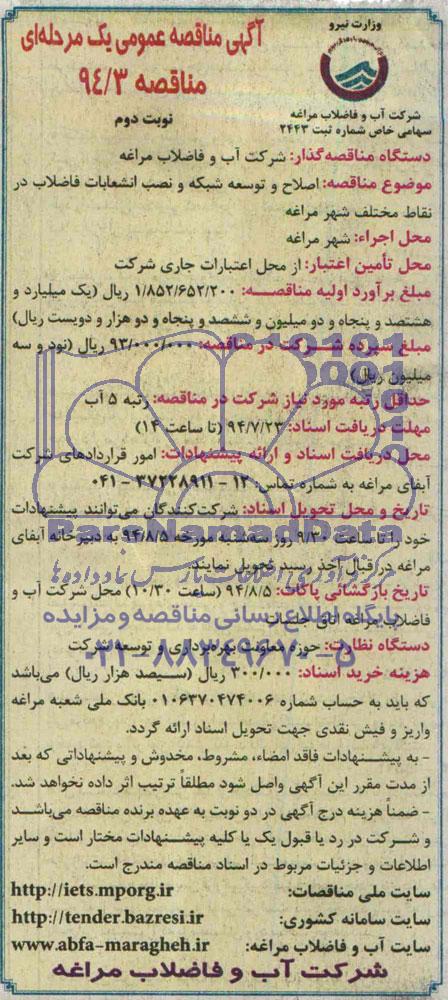 وزارت نیرو
آگهی مناقصه عمومی یک مرحله‌ای
مناقصه ۹۴/۳
نوبت دوم
شرکت آب و فاضلاب مراغه
سهامی خاص شماره ثبت ۲۴۴۳
دستگاه مناقصه‌گذار: شرکت آب و فاضلاب مراغه
موضوع مناقصه: اصلاح و توسعه شبکه و نصب انشعابات فاضلاب در
نقاط مختلف شهر مراغه
محل اجراء: شهر مراغه
محل تأمین اعتبار: از محل اعتبارات جاری شرکت
مبلغ برآورد اولیه مناقصـــه: ۱/۸۵۲/۶۵۲/۲۰۰ ریال (یک میلیارد و
هشتصد و پنجاه و دو میلیون و ششصد و پنجاه و دو هزار و دویست ریال)
مبلغ سپرده شـــرکت در مناقصه: ۹۳/۰۰۰/۰۰۰ ریال (نود و سه
میلیون ریال)
حداقل رتبه مورد نیاز شرکت در مناقصه: رتبه ۵ آب
مهلت دریافت اسناد: ۹۴/۷/۲۳ (تا ساعت ۱۴)
محل دریافت اسناد و ارائه پیشنهادات: امور قراردادهای شرکت
آبفای مراغه به شماره تماس: ۱۲ - ۳۷۲۲۸۹۱۱ - ۰۴۱
تاریخ و محل تحویل اسناد: شرکت‌کنندگان می‌توانند پیشنهادات
خود را تا ساعت ۹/۳۰ روز سه‌شنبه مورخه ۹۴/۸/۵ به دبیرخانه آبفای
مراغه در قبال أخذ رسید تحویل نمایند.
تاریخ بازگشائی پاکات: ۹۴/۸/۵ (ساعت ۱۰/۳۰) محل شرکت آب و
فاضلاب مراغه اتاق جلسات
دستگاه نظارت: حوزه معاونت بهره‌برداری و توسعه شرکت
هزینه خرید اسناد: ۳۰۰/۰۰۰ ریال (سـیصد هزار ریال) می‌باشد
که باید به حساب شماره ۰۱۰۶۳۷۰۴۷۴۰۰۶ بانک ملی شعبه مراغه
واریز و فیش نقدی جهت تحویل اسناد ارائه گردد.
- به پیشـنهادات فاقد امضاء، مشروط، مخدوش و پیشنهاداتی که بعد
از مدت مقرر این آگهی واصل شود مطلقاً ترتیب اثر داده نخواهد شد.
- ضمناً هزینه درج آگهی در دو نوبت به عهده برنده مناقصه می‌باشـد
و شـرکت در رد یا قبول یک یا کلیه پیشـنهادات مختار است و سایر
اطلاعات و جزئیات مربوط در اسناد مناقصه مندرج است.
سایت ملی مناقصات: http://iets.mporg.ir
سایت سامانه کشوری: http://tender.bazresi.ir
سایت آب و فاضلاب مراغه: www.abfa-maragheh.ir
شرکت آب و فاضلاب مراغه
ParsNamadData
مرکز فرآوری اطلاعات پارس نماد داده ها
پایگاه اطلاع رسانی مناقصه و مزایده
۰۲۱-۸۸۳۴۹۶۷۰-۵